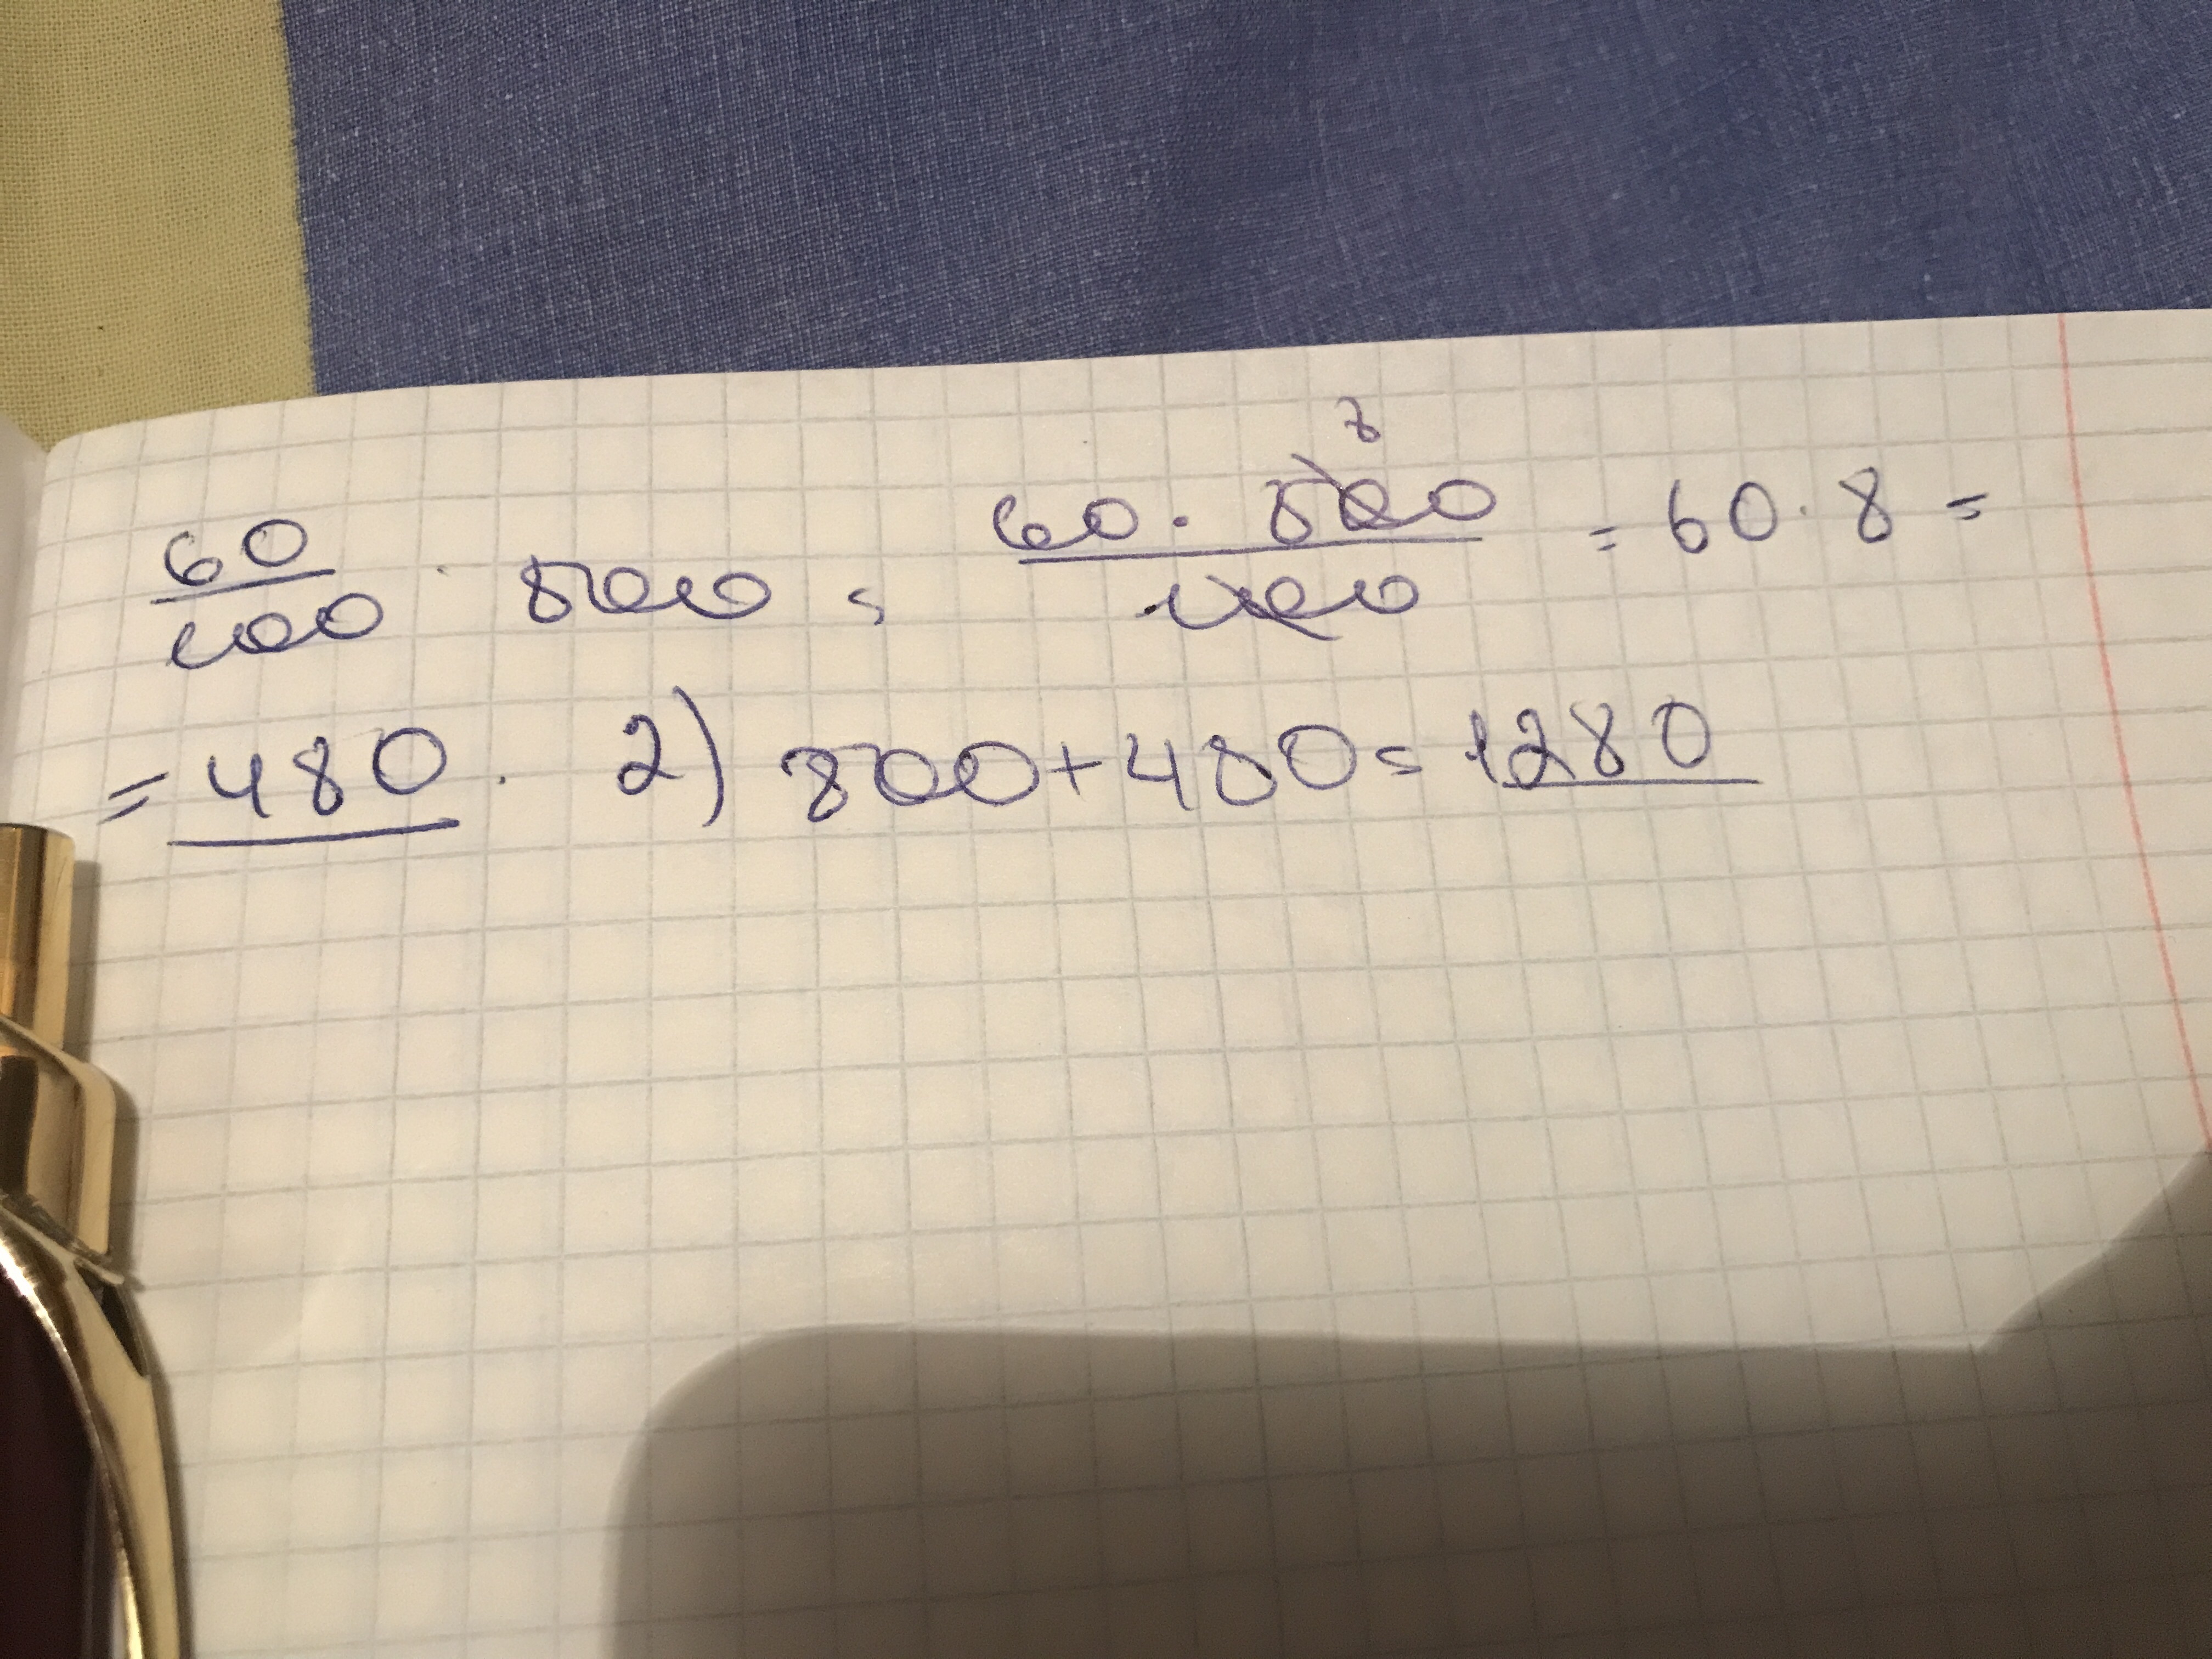 60/100 · 800 = 60 · 800/100 = 60 · 8 =
8
= 480. 2) 800+480=1280